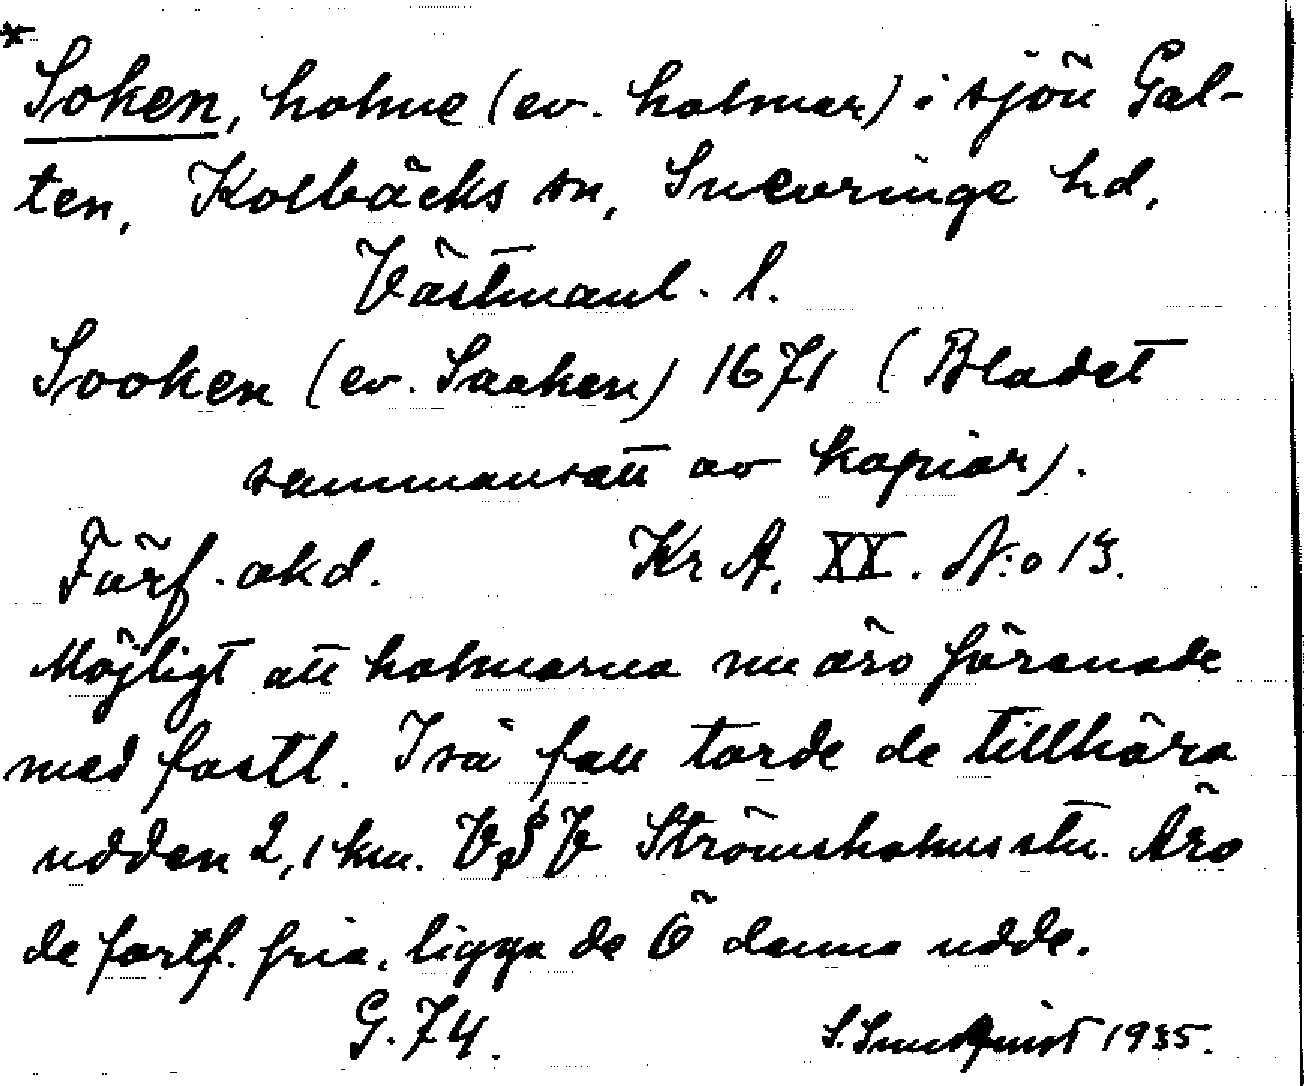 *
Soken, holme (ev. holmar) i sjön Gal-
ten, Kolbäcks sn, Snevringe hd,
Västmanl. l.
Sooken (ev. Saaken) 1671 (Bladet
sammansatt av kopior).
Förf. okd. Kr A. XX. N:o 13.
Möjligt att holmarna nu äro förenade
med fastl. I så fall torde de tillhöra
udden 2,1 km. VSV Strömsholms stn. Äro
de fortf. fria, ligga de Ö denna udde.
G. 74. S. Sundquist 1935.